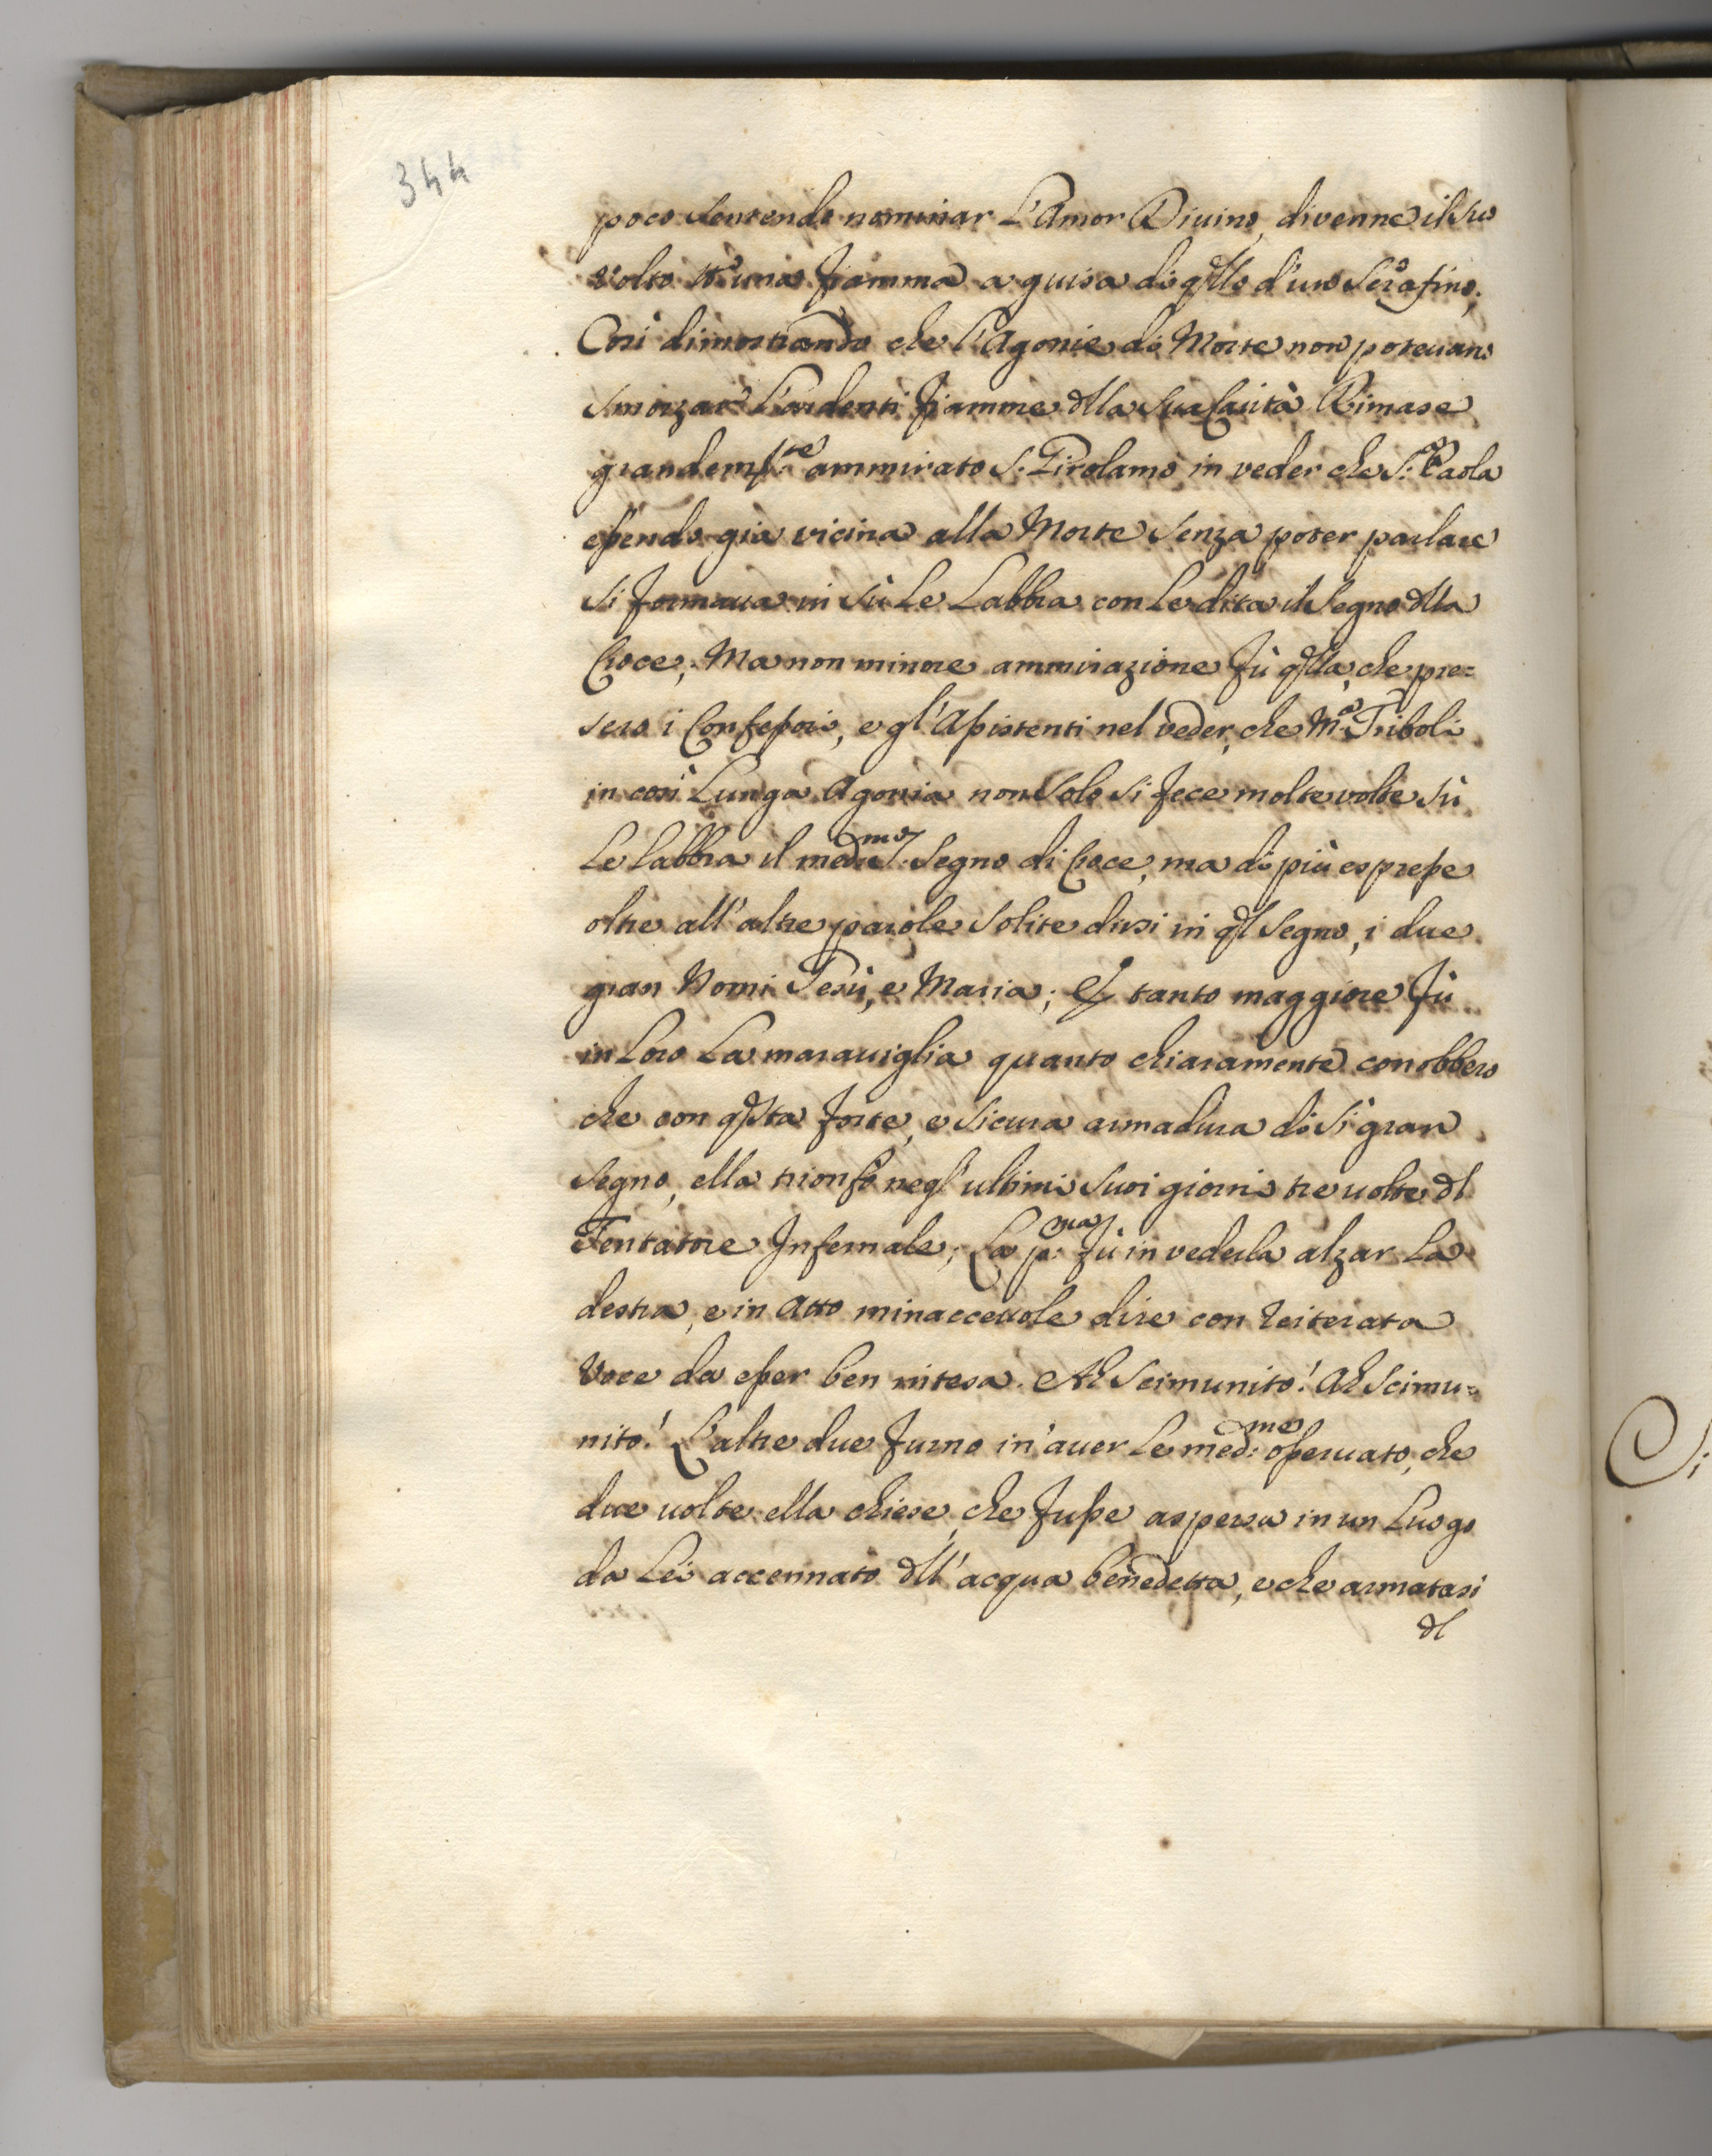 344
poco sentendo nominar L'Amor Diuino, divenne il suo
volto tt'una fiamma a guisa di qllo d'uno Serafino,
Così dimostrando che l'Agonie di Morte non poteuano
smorzar L'ardenti fiamme dlla sua Carità. Rimase
grandemte ammirato S: Girolamo in veder che S:a Paola
essendo già vicina alla Morte senza poter parlare
si formaua in sù Le Labbra con Le dita il segno dlla
Croce; Ma non minore ammirazione fù qlla, che pre=
sero i Confessori, e gl'Assistenti nel veder, che M:a Triboli
in così Lunga Agonia non solo si fece molte volte sù
Le labbra il medmo segno di Croce, ma di più espresse
oltre all'altre parole solite dirsi in ql segno, i due
gran Nomi Gesù, e Maria; Et tanto maggiore fù
in Loro La marauiglia quanto chiaramente conobbero
che con qsta forte, e sicura armadura di sì gran
segno, ella trionfò negl'ultimi suoi giorni tre uolte dl
Tentatore Infernale; La p:ma fù in vederla alzar La
destra, e in atto minacceuole dire con reiterata
Voce da esser ben intesa. Ah Scimunito! Ah Scimu=
nito! L'altre due furno in auer Le med:me osseruato, che
due uolte ella chiese, che fusse aspersa in un Luogo
da Lei accennato dll'acqua benedetta, e che armatasi
dl